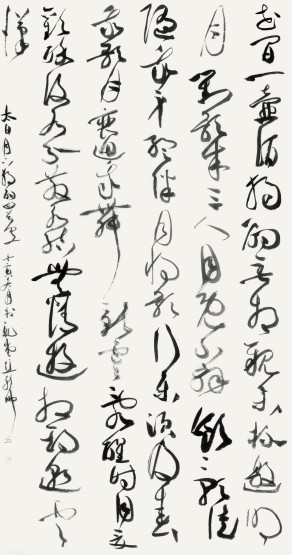 花間一壺酒獨酌無相親舉杯邀明
月對影成三人月既不解飲影徒
隨我身暫伴月將影行樂須及春
我歌月徘徊我舞影零亂醒時同交
歡醉後各分散永結無情遊相期邈雲
漢
太白月下獨酌四首之